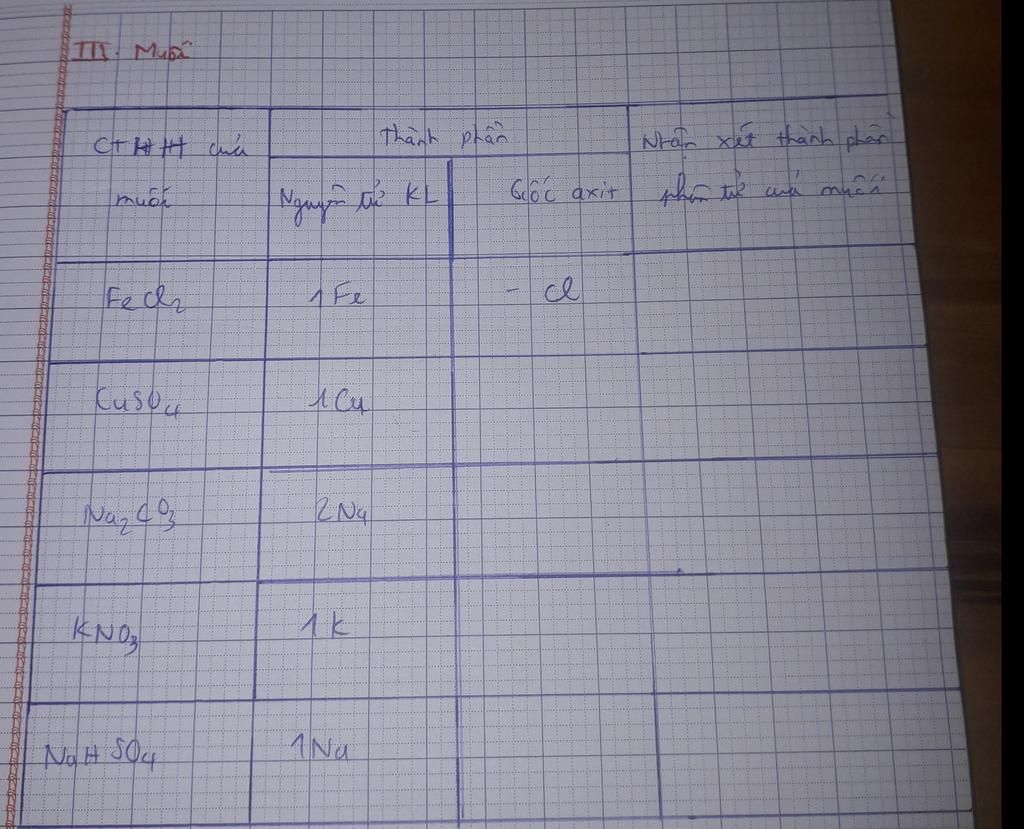 III. Muối
CTHH của muối
Thành phần
Nhận xét thành phần
Nguyên tử KL
Gốc axit
phân tử của muối
FeCl₂
1 Fe
- Cl
CuSO₄
1 Cu
Na₂CO₃
2 Na
KNO₃
1 K
NaHSO₄
1 Na